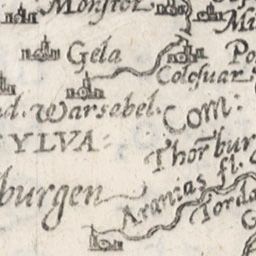 Monstor
Mi
Gela
Po
Colosuar
d. Warsebel. Com:
YLVA:
Thorbur
burgen
Aranias fl.
Torda
G